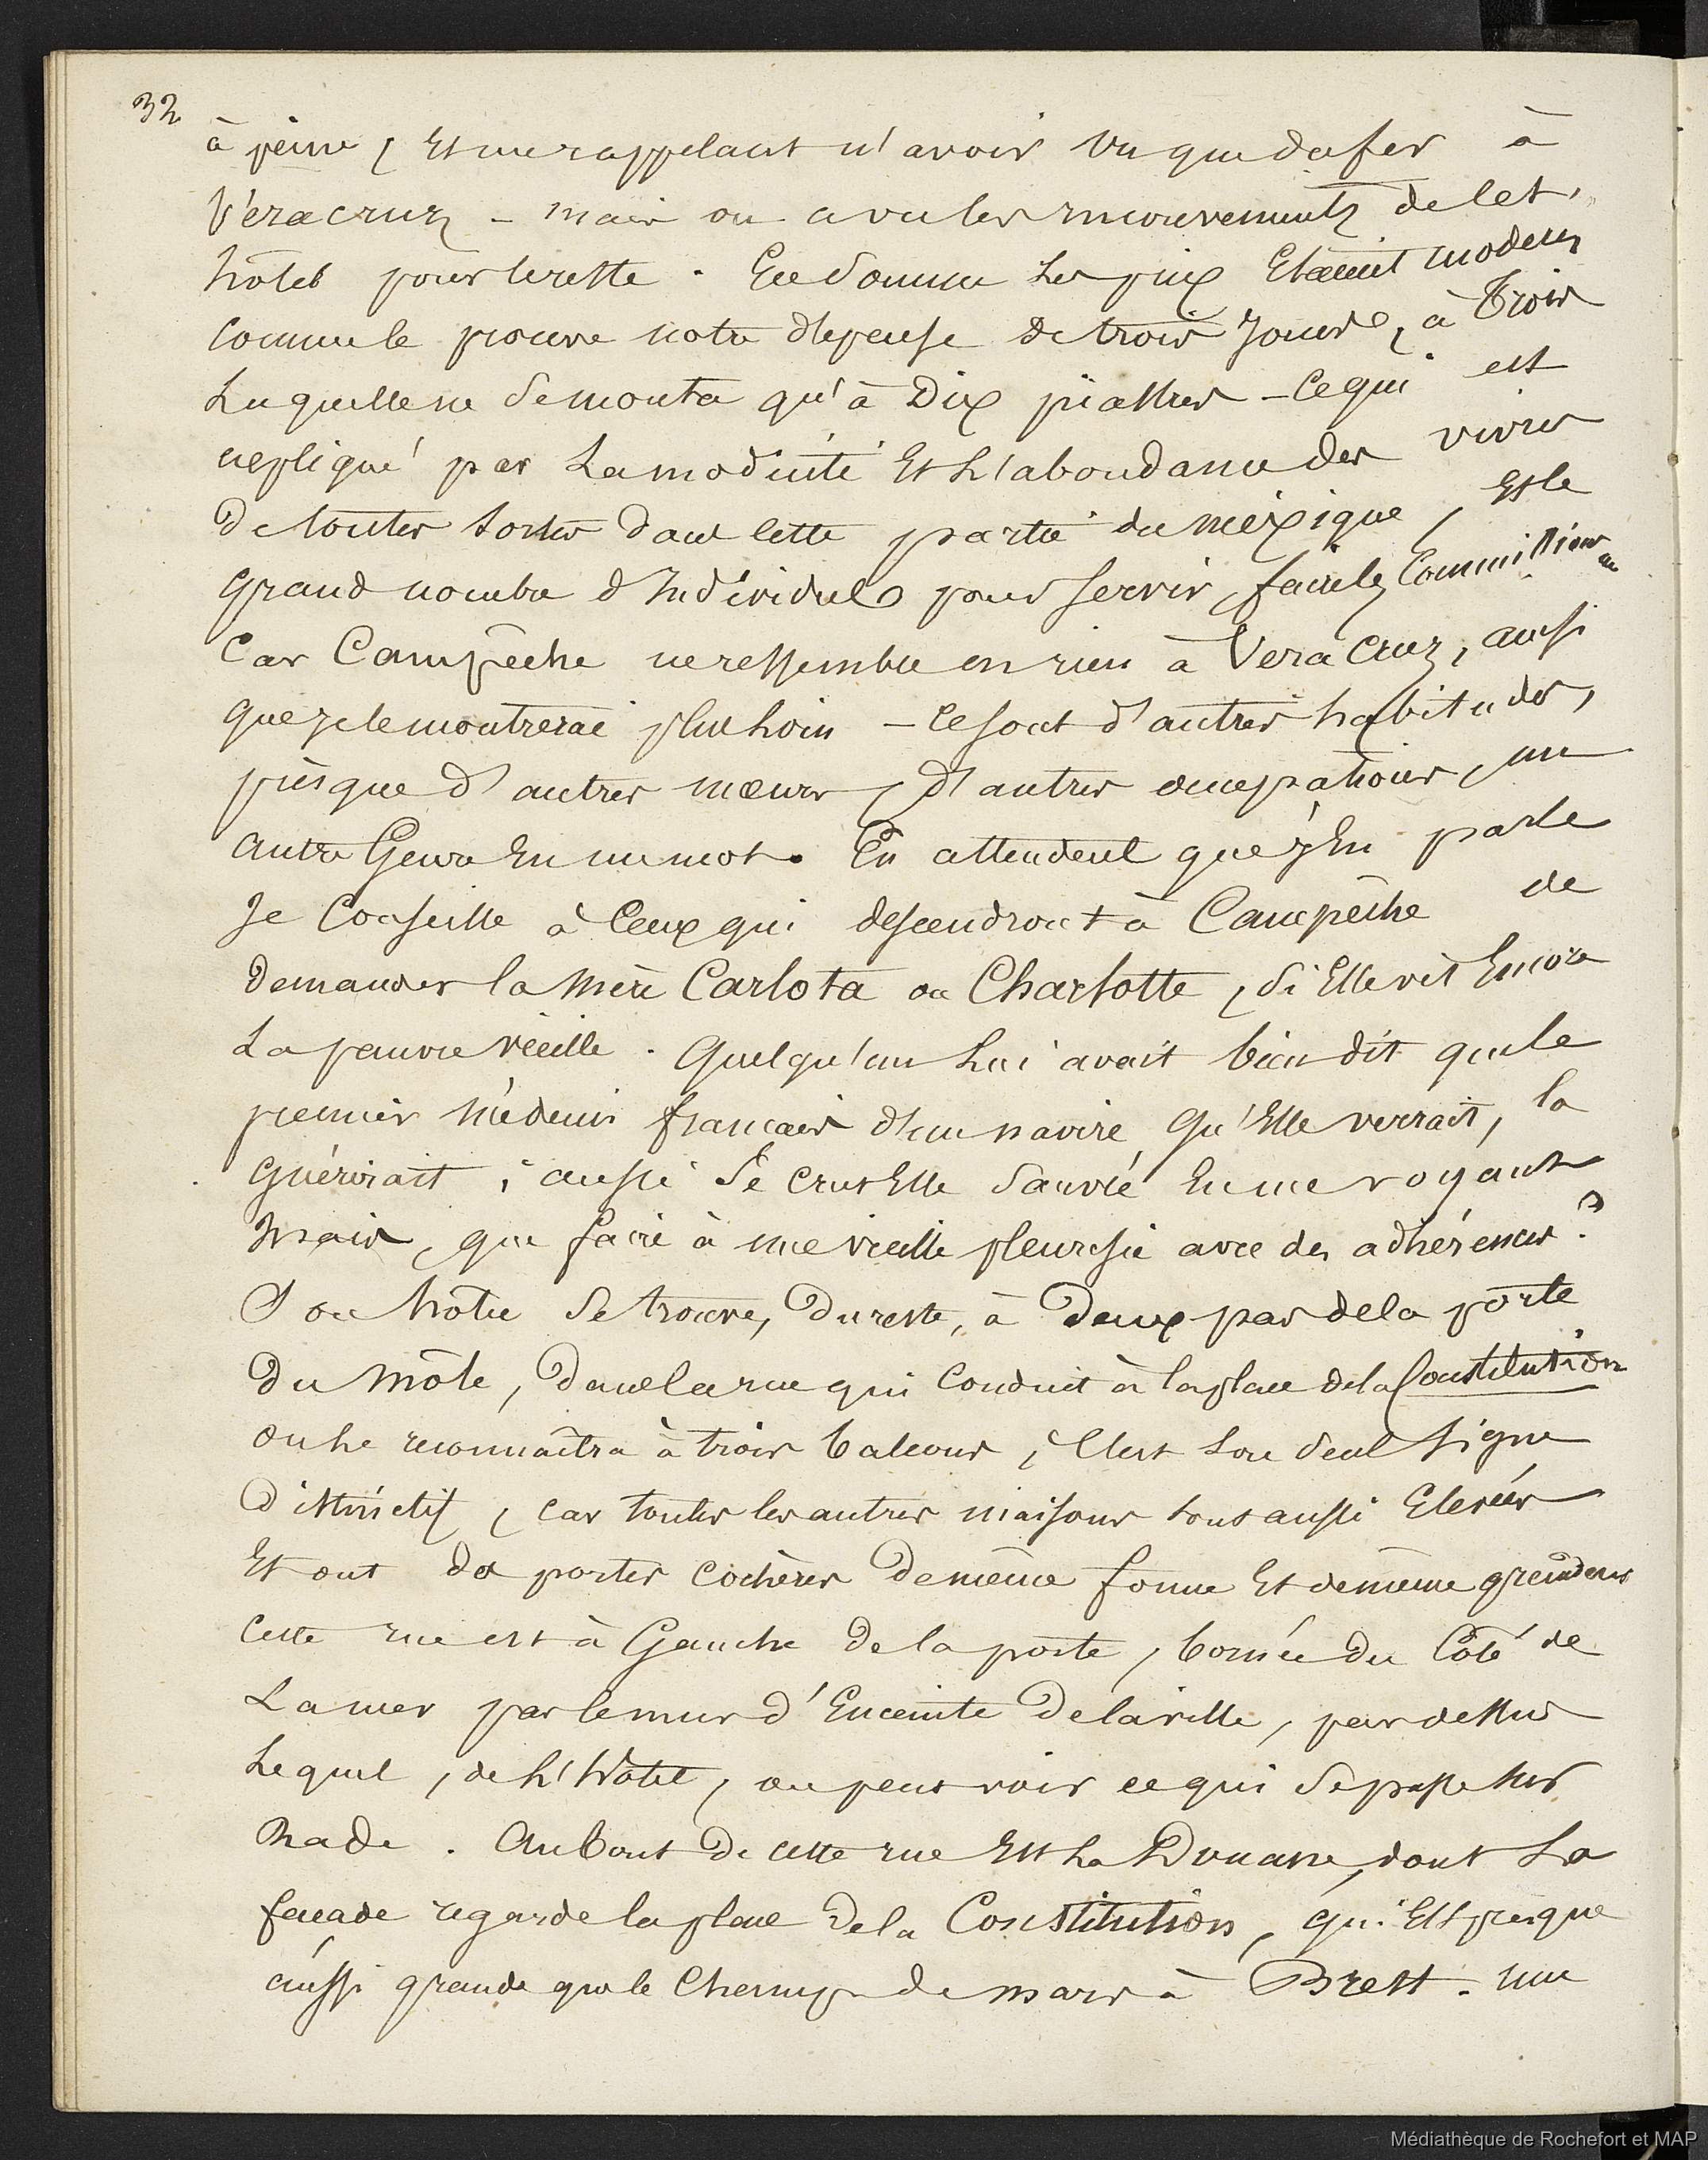 32
à peine, et me rappelant n'avoir vu que du fer à
Véracruz - mais on a vu les mouvements de cet
hôtel pour le reste. En somme les prix étaient modérés
comme le prouve notre dépense de trois jours, à trois
laquelle ne se monta qu'à dix piastres - ce qui est
expliqué par la modicité et l'abondance des vivres
de toutes sortes dans cette partie du méxique, et le
grand nombre d'individus pour servir, faire les commissions
Car Campêche ne ressemble en rien à Véra Cruz, ainsi
que je le montrerai plus loin - ce sont d'autres habitudes,
presque d'autres mœurs, d'autres occupations, un
autre genre en un mot. En attendant que j'en parle
Je conseille à ceux qui descendront à Campêche de
demander la mère Carlota ou Charlotte, si elle vit encore
la pauvre vieille. Quelqu'un lui avait bien dit que le
premier médecin français d'un navire qu'elle verrait, la
guérirait, aussi se crut elle sauvée en me voyant
mais, que faire à une vieille pleurésie avec des adhérences?
Son hôtel se trouve, du reste, à deux pas de la porte
du Môle, dans la rue qui conduit à la place de la Constitution
on le reconnaîtra à trois balcons, c'est son seul signe
distinctif, car toutes les autres maisons sont aussi élevées
et ont des portes cochères de même forme et de même grandeur
Cette rue est à gauche de la porte, bornée du côté de
la mer par le mur d'enceinte de la ville, par dessus
lequel, de l'hôtel, on peut voir ce qui se passe sur
rade. Au bout de cette rue est la Douane, dont la
façade regarde la place de la Constitution, qui est presque
aussi grande que le champ de mars à Brest. une
Médiathèque de Rochefort et MAP